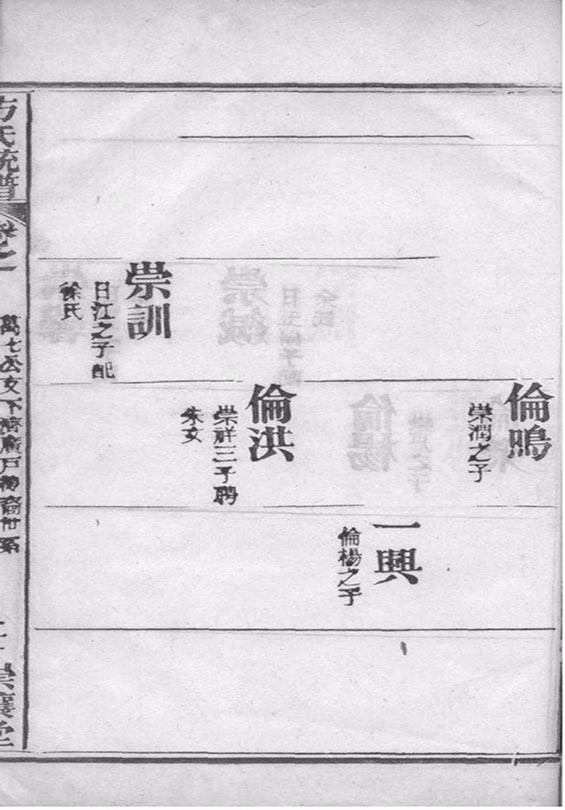 倫鳴
崇潤之子
一興
倫楊之子
倫洪
崇祥三子聘
朱女
崇訓
日江之子配
徐氏
方氏統譜
卷之一
萬七公支下 廣戶 裔世系
堂